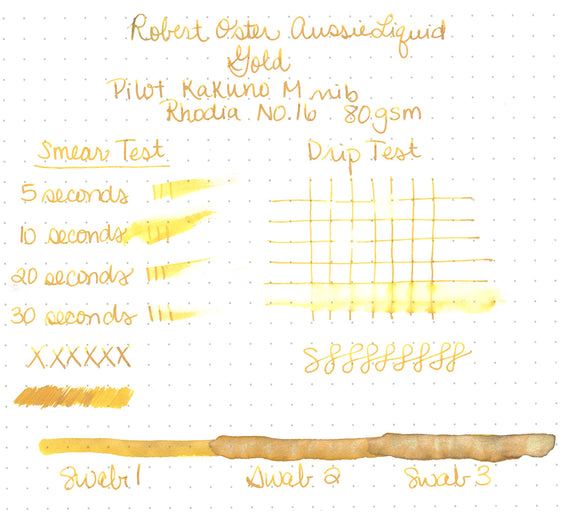 Robert Oster Aussie Liquid
Gold
Pilot Kakuno M nib
Rhodia No.16 80gsm
Smear Test
Drip Test
5 seconds
10 seconds
20 seconds
30 seconds
X.XXXXX
Swab 1
Swab 2
Swab 3